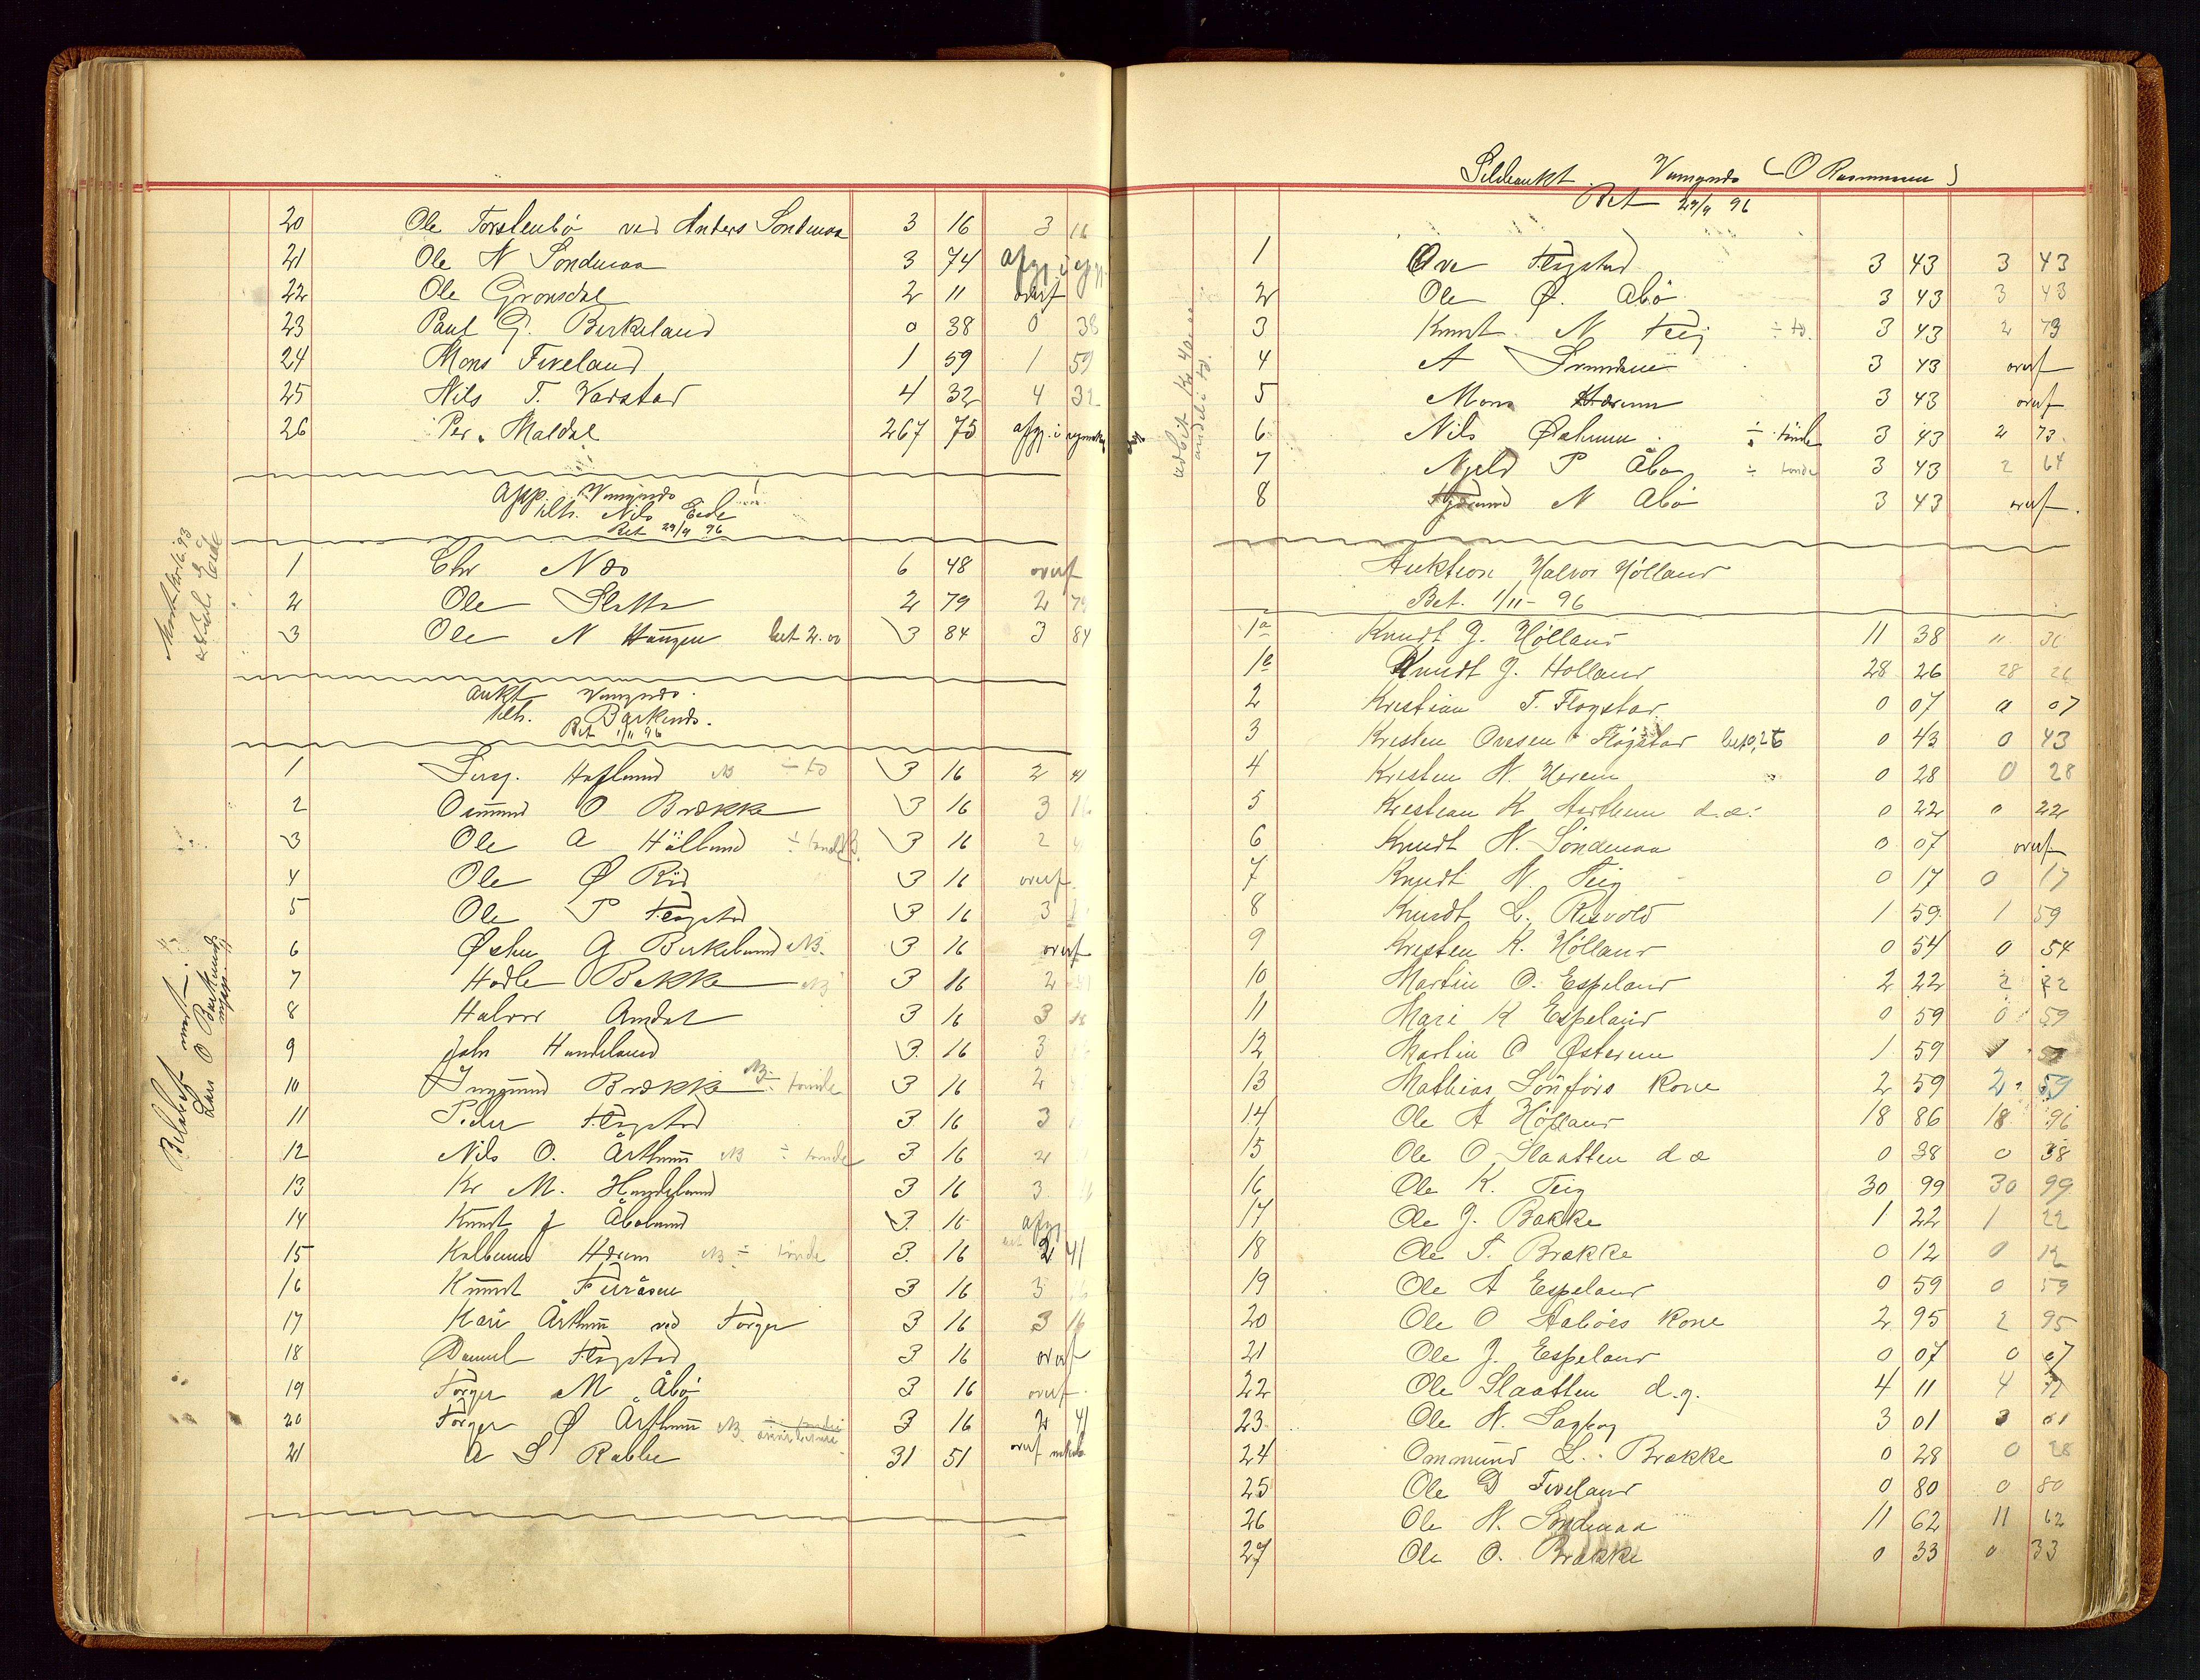 20 Ole Torstenbö ved Anders Sondenaa 3 16 3 16
21 Ole N Sondenaa 3 74 afgj i opgj
22 Ole Gronsdal 2 11 overf
23 Paul G. Birkeland 0 38 0 38
24 Mons Fiveland 1 59 1 59
25 Nils T. Varstad 4 32 4 32
26 Per Maldal 267 75 afgj. i
Vamynds
Nils Eide
Bet 29/9 96
1 Chr Næs 6 48 overf
2 Ole Slette 2 79 2 79
3 Ole N Haugen bet 2.00 3 84 3 84
aukt Vamynds.
Barkends.
Bet 1/11 96
1 Haflund NB ÷ to 3 16 2 41
2 Osmund O Brække 3 16 3 16
3 Ole A Hölland ÷ tønde 3 16 2
4 Ole Ø Rid 3 16 overf.
5 Ole P Flogstad 3 16 3
6 Østen G Birkeland NB. 3 16 overf
7 Hadle Bakke NB 3 16 2
8 Halvor Amdal 3 16 3 16
9 John Handeland 3 16 3
10 Ingmund Brække NB ÷ tønde 3 16 2
11 Peder Flogstad 3 16 3
12 Nils O. Årthun NB ÷ tønde 3 16 2
13 Kr M. Handeland 3 16 3
14 Knut J Åbeland 3 16 afgj
15 Kolbein Hærem NB ÷ tønde 3 16 2 41
16 Knut Furåsen 3 16 3
17 Kari Årthun ved Torger 3 16 3 16
18 Daniel Flogstad 3 16 overf
19 Torger M Åbö 3 16 overf.
20 Torger Ø Årthun NB 3 16 2 41
21 A S Rabbe 31 51 overf
Betalt
Lars O Barkends
Sildeaukt. Vamynds (O Rasmussen)
Bet 29/9 96
1 Ove Flogstad 3 43 3 43
2 Ole Ø. Åbö 3 43 3 43
3 Knut N Teig ÷ to. 3 43 2 73
4 A 3 43 overf
5 Mons Hærem 3 43 overf
6 Nils Østhun ÷ tønde 3 43 2 73.
7 Njeld P Åbö ÷ tønde 3 43 2 64
8 N Abö 3 43 overf.
Auktion Halvor Hölland
Bet. 1/11 - 96
1a Knudt G. Hölland 11 38 11 38
1b Knudt G. Holland 28 26 28 26
2 Kristian T. Flogstad 0 07 0 07
3 Kristen Ovesen Flögstad bet 0,26 0 43 0 43
4 Kristen N. Herem 0 28 0 28
5 Krestian K Aarthun d.æ: 0 22 0 22
6 Knudt N. Söndenaa 0 07 overf
7 Knudt N Teig 0 17 0 17
8 Knudt L. Risvold 1 59 1 59
9 Kristen K. Hölland 0 54 0 54
10 Martin O. Espeland 2 22 2 22
11 Mari K Espeland 0 59 0 59
12 Martin O Østerem 1 59 1 59
13 Mathias Sönförs Kone 2 59 2 59
14 Ole A Hölland 18 86 18 96
15 Ole O Slaatten d æ 0 38 0 38
16 Ole K. Teig 30 99 30 99
17 Ole J. Bakke 1 22 1 22
18 Ole T. Brække 0 12 0 12
19 Ole A Espeland 0 59 0 59
20 Ole O Aaboes Kone 2 95 2 95
21 Ole J. Espeland 0 07 0 07
22 Ole Slaatten d.y. 4 11 4
23 Ole N. Sagbog 3 01 3 01
24 Ommund L. Brække 0 28 0 28
25 Ole D Fiveland 0 80 0 80
26 Ole N. Söndenaa 11 62 11 62
27 Ole O. Brække 0 33 0 33